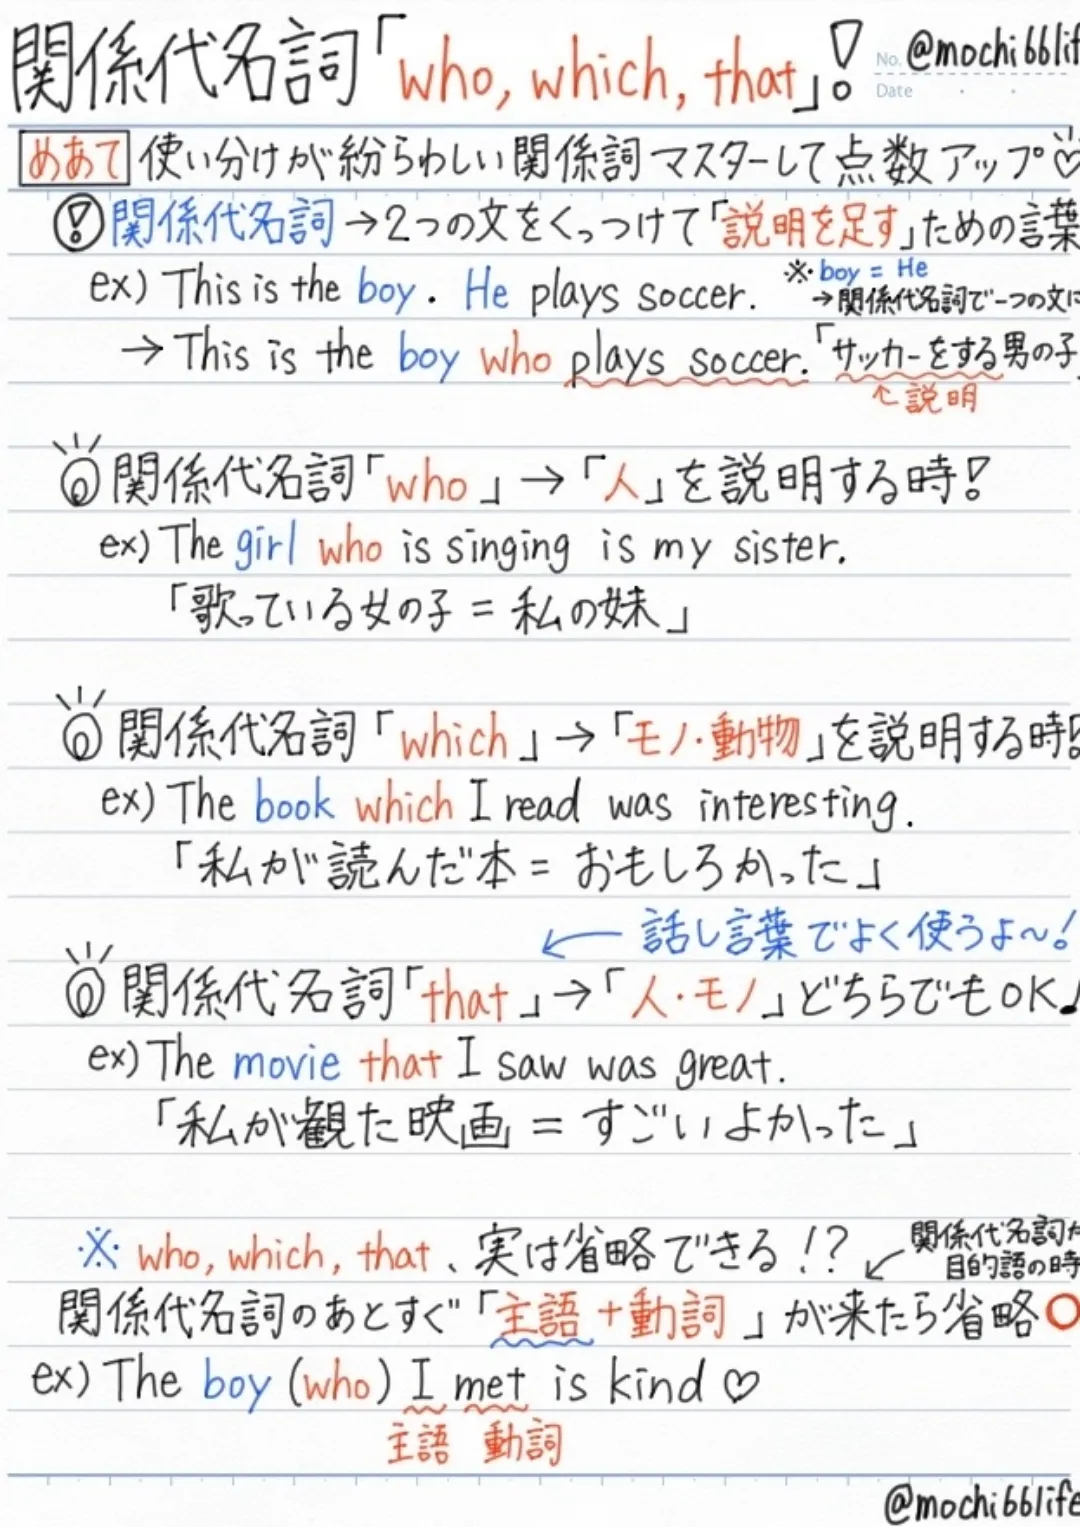 関係代名詞「who, which, that」!
No. @mochibblif
Date
めあて 使い分けが紛らわしい関係詞マスターして点数アップ♡
! 関係代名詞→2つの文をくっつけて「説明を足す」ための言葉
ex) This is the boy. He plays soccer.
※boy = He
→関係代名詞で一つの文に
→ This is the boy who plays soccer.「サッカーをする男の子」
↖説明
関係代名詞「who」→「人」を説明する時!
ex) The girl who is singing is my sister.
「歌っている女の子 = 私の妹」
関係代名詞「which」→「モノ・動物」を説明する時!
ex) The book which I read was interesting.
「私が読んだ本 = おもしろかった」
← 話し言葉でよく使うよ〜!
関係代名詞「that」→「人・モノ」どちらでもOK♪
ex) The movie that I saw was great.
「私が観た映画 = すごいよかった」
※ who, which, that、実は省略できる!?
関係代名詞が
目的語の時
関係代名詞のあとすぐ「主語+動詞」が来たら省略○
ex) The boy (who) I met is kind♡
主語 動詞
@mochibblife